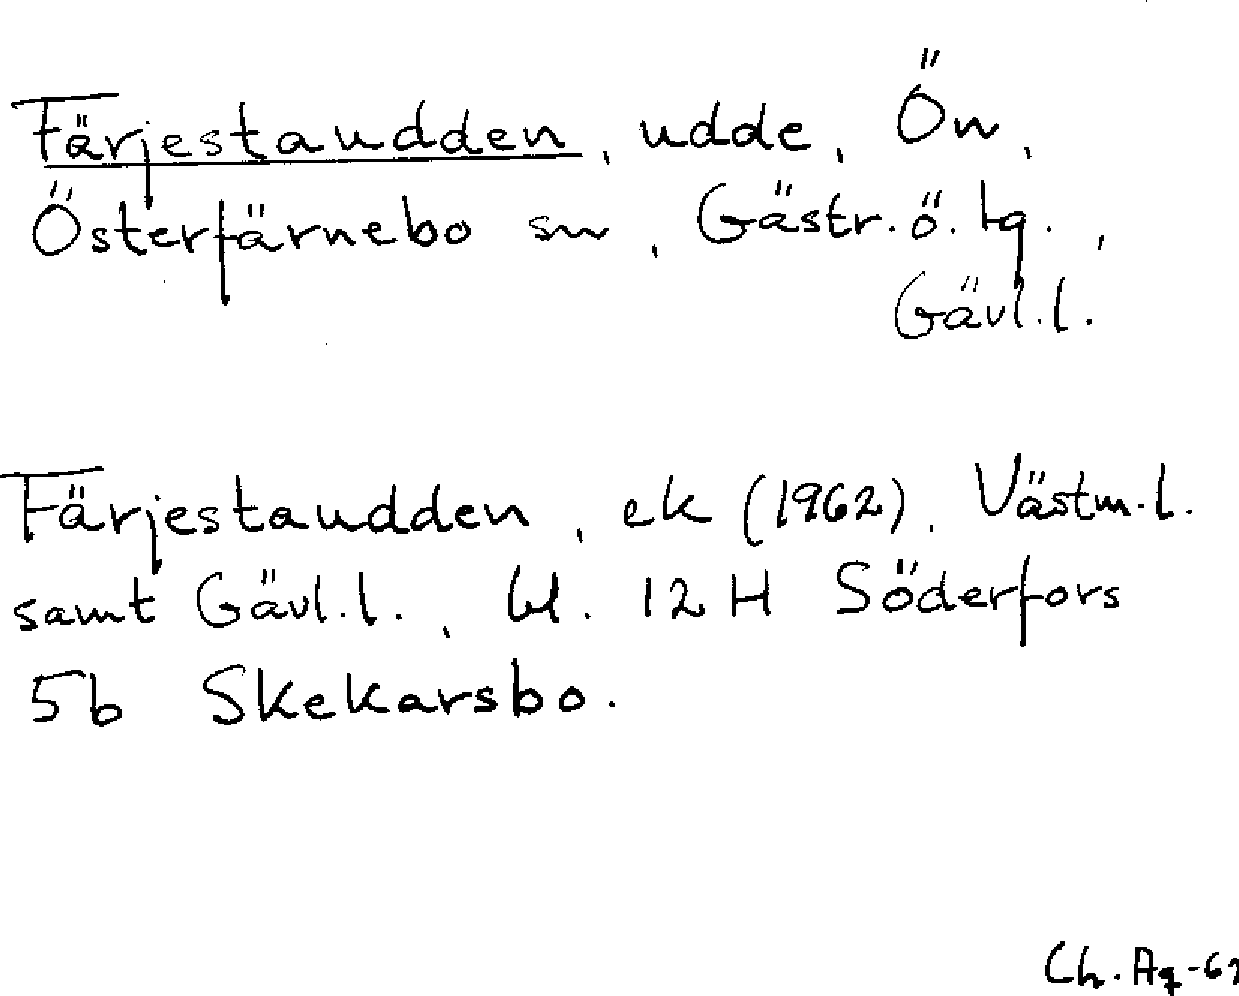 Färjestaudden, udde, Ön,
Österfärnebo sn, Gästr. ö. tg.,
Gävl. l.
Färjestaudden, ek (1962), Västm. l.
samt Gävl. l., bl. 12 H Söderfors
5b Skekarsbo.
Ch.